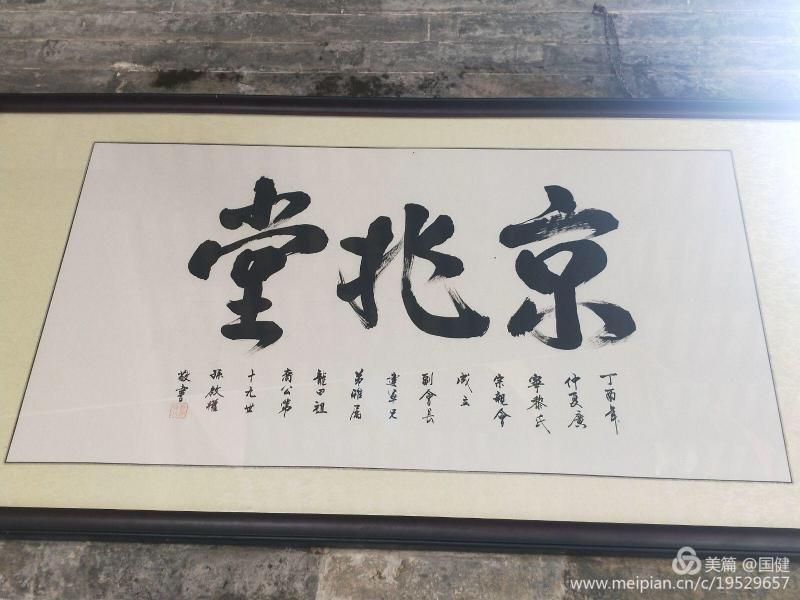 京兆堂
丁酉年
仲夏廣
寧黎氏
宗親會
成立
副會長
建卓兄
弟雅屬
龍田祖
裔公第
十九世
孫啟權
敬書
美篇 @国健
www.meipian.cn/c/19529657